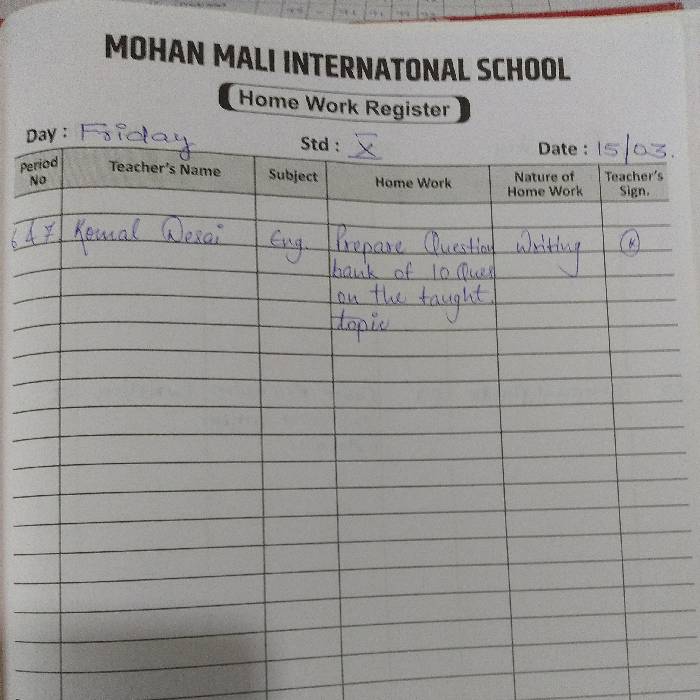 MOHAN MALI INTERNATONAL SCHOOL
Home Work Register
Day : Friday Std : X Date : 15/03.
Period No Teacher's Name Subject Home Work Nature of Home Work Teacher's Sign.
6 & 7. Komal Desai Eng. Prepare Question Writing K
bank of 10 Ques
on the taught
topic